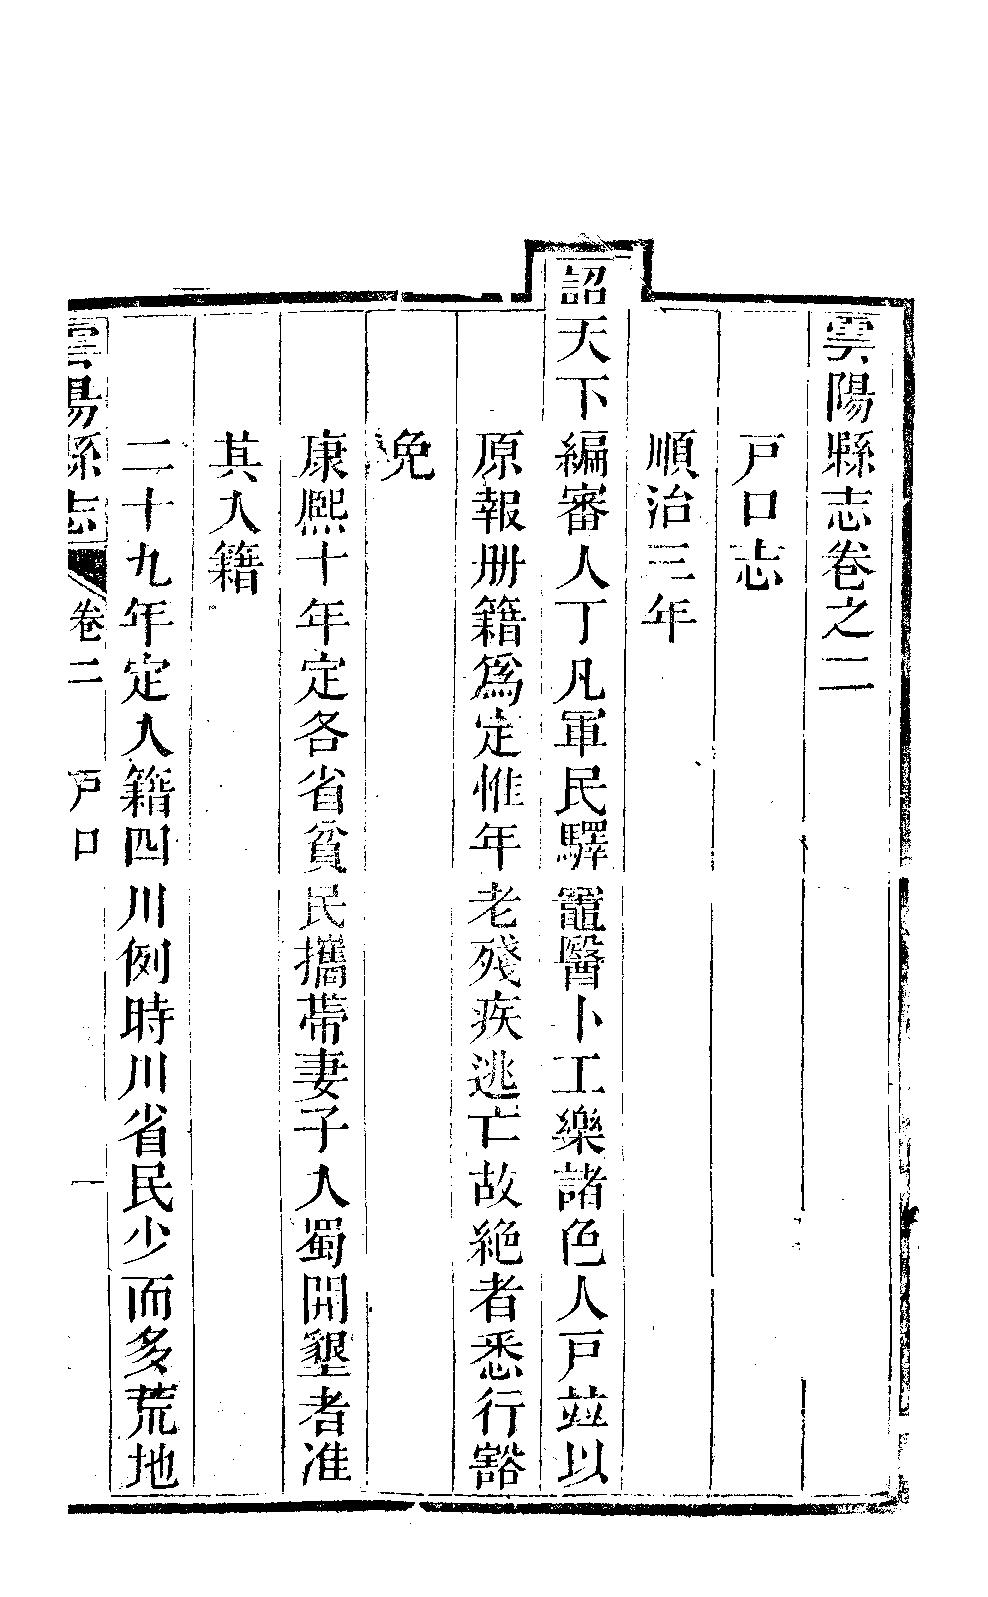 雲陽縣志卷之二
戸口志
順治三年
詔天下編審人丁凡軍民驛竈醫卜工樂諸色人戸並以
原報册籍爲定惟年老殘疾逃亡故絶者悉行豁
免
康熙十年定各省貧民攜帶妻子入蜀開墾者准
其入籍
二十九年定入籍四川例時川省民少而多荒地
雲陽縣志 卷二 戸口 一